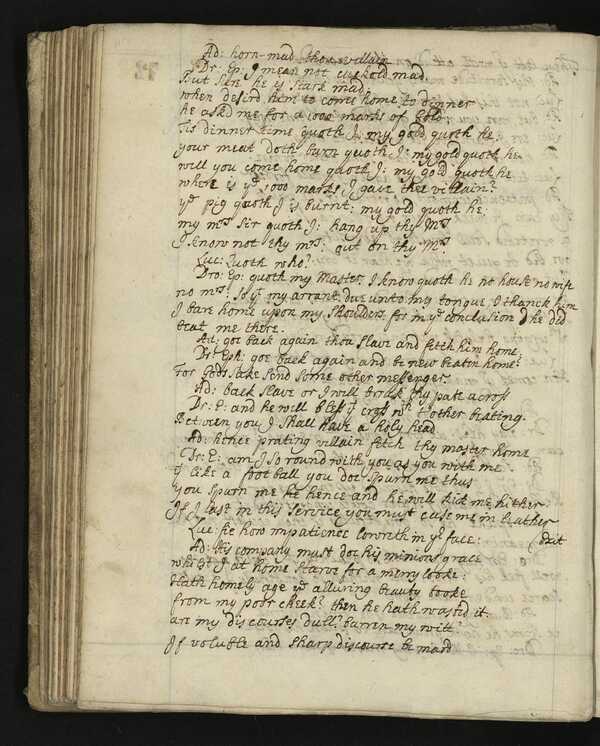 Ad: horn-mad thou villain
Dr: Ep: I mean not cuckold mad.
But sure he is stark mad
when I desird him to come home to dinner
he askd me for a 1000 marks of Gold:
tis dinner time quoth I, my gold quoth he:
your meat doth burn quoth I: my gold quoth he
will you come home quoth I: my gold quoth he
where is ye 1000 marks I gave thee villain?
ye pig quoth I is burnt: my gold quoth he:
my mrs sir quoth I: hang up thy Mrs
I know not thy mrs: out on thy Mrs
Luc: Quoth who?
Dro: Ep: quoth my Master. I know quoth he no house no wife
no mrs: so yt my arrant due unto my tongue I thanck him
I bare home upon my shoulders for in ye conclusion he did
beat me there.
Ad: goe back again thou slave and fetch him home,
Dr: Eph: goe back again and be new beaten home?
For Gods sake send some other messenger.
Ad: back slave or I will break thy pate across
Dr: E: and he will bless yt cross wth other beating.
Between you I shall have a holy head
Ad: hence prating villain fetch thy master home
Dr: E: am I so round with you as you with me
yt like a foot ball you doe spurn me thus
you spurn me he hence and he will kick me hither
If I last in this service you must case me in leather
(Exit
Luc: fie how impatience lowreth in ye face:
Ad: His company must doe his minions grace
whilst I at home starve for a merry looke:
Hath homely age ye alluring beauty tooke
from my poor cheek? then he hath wasted it.
are my discourses dull? barren my witt?
If voluble and sharp discourse be mard